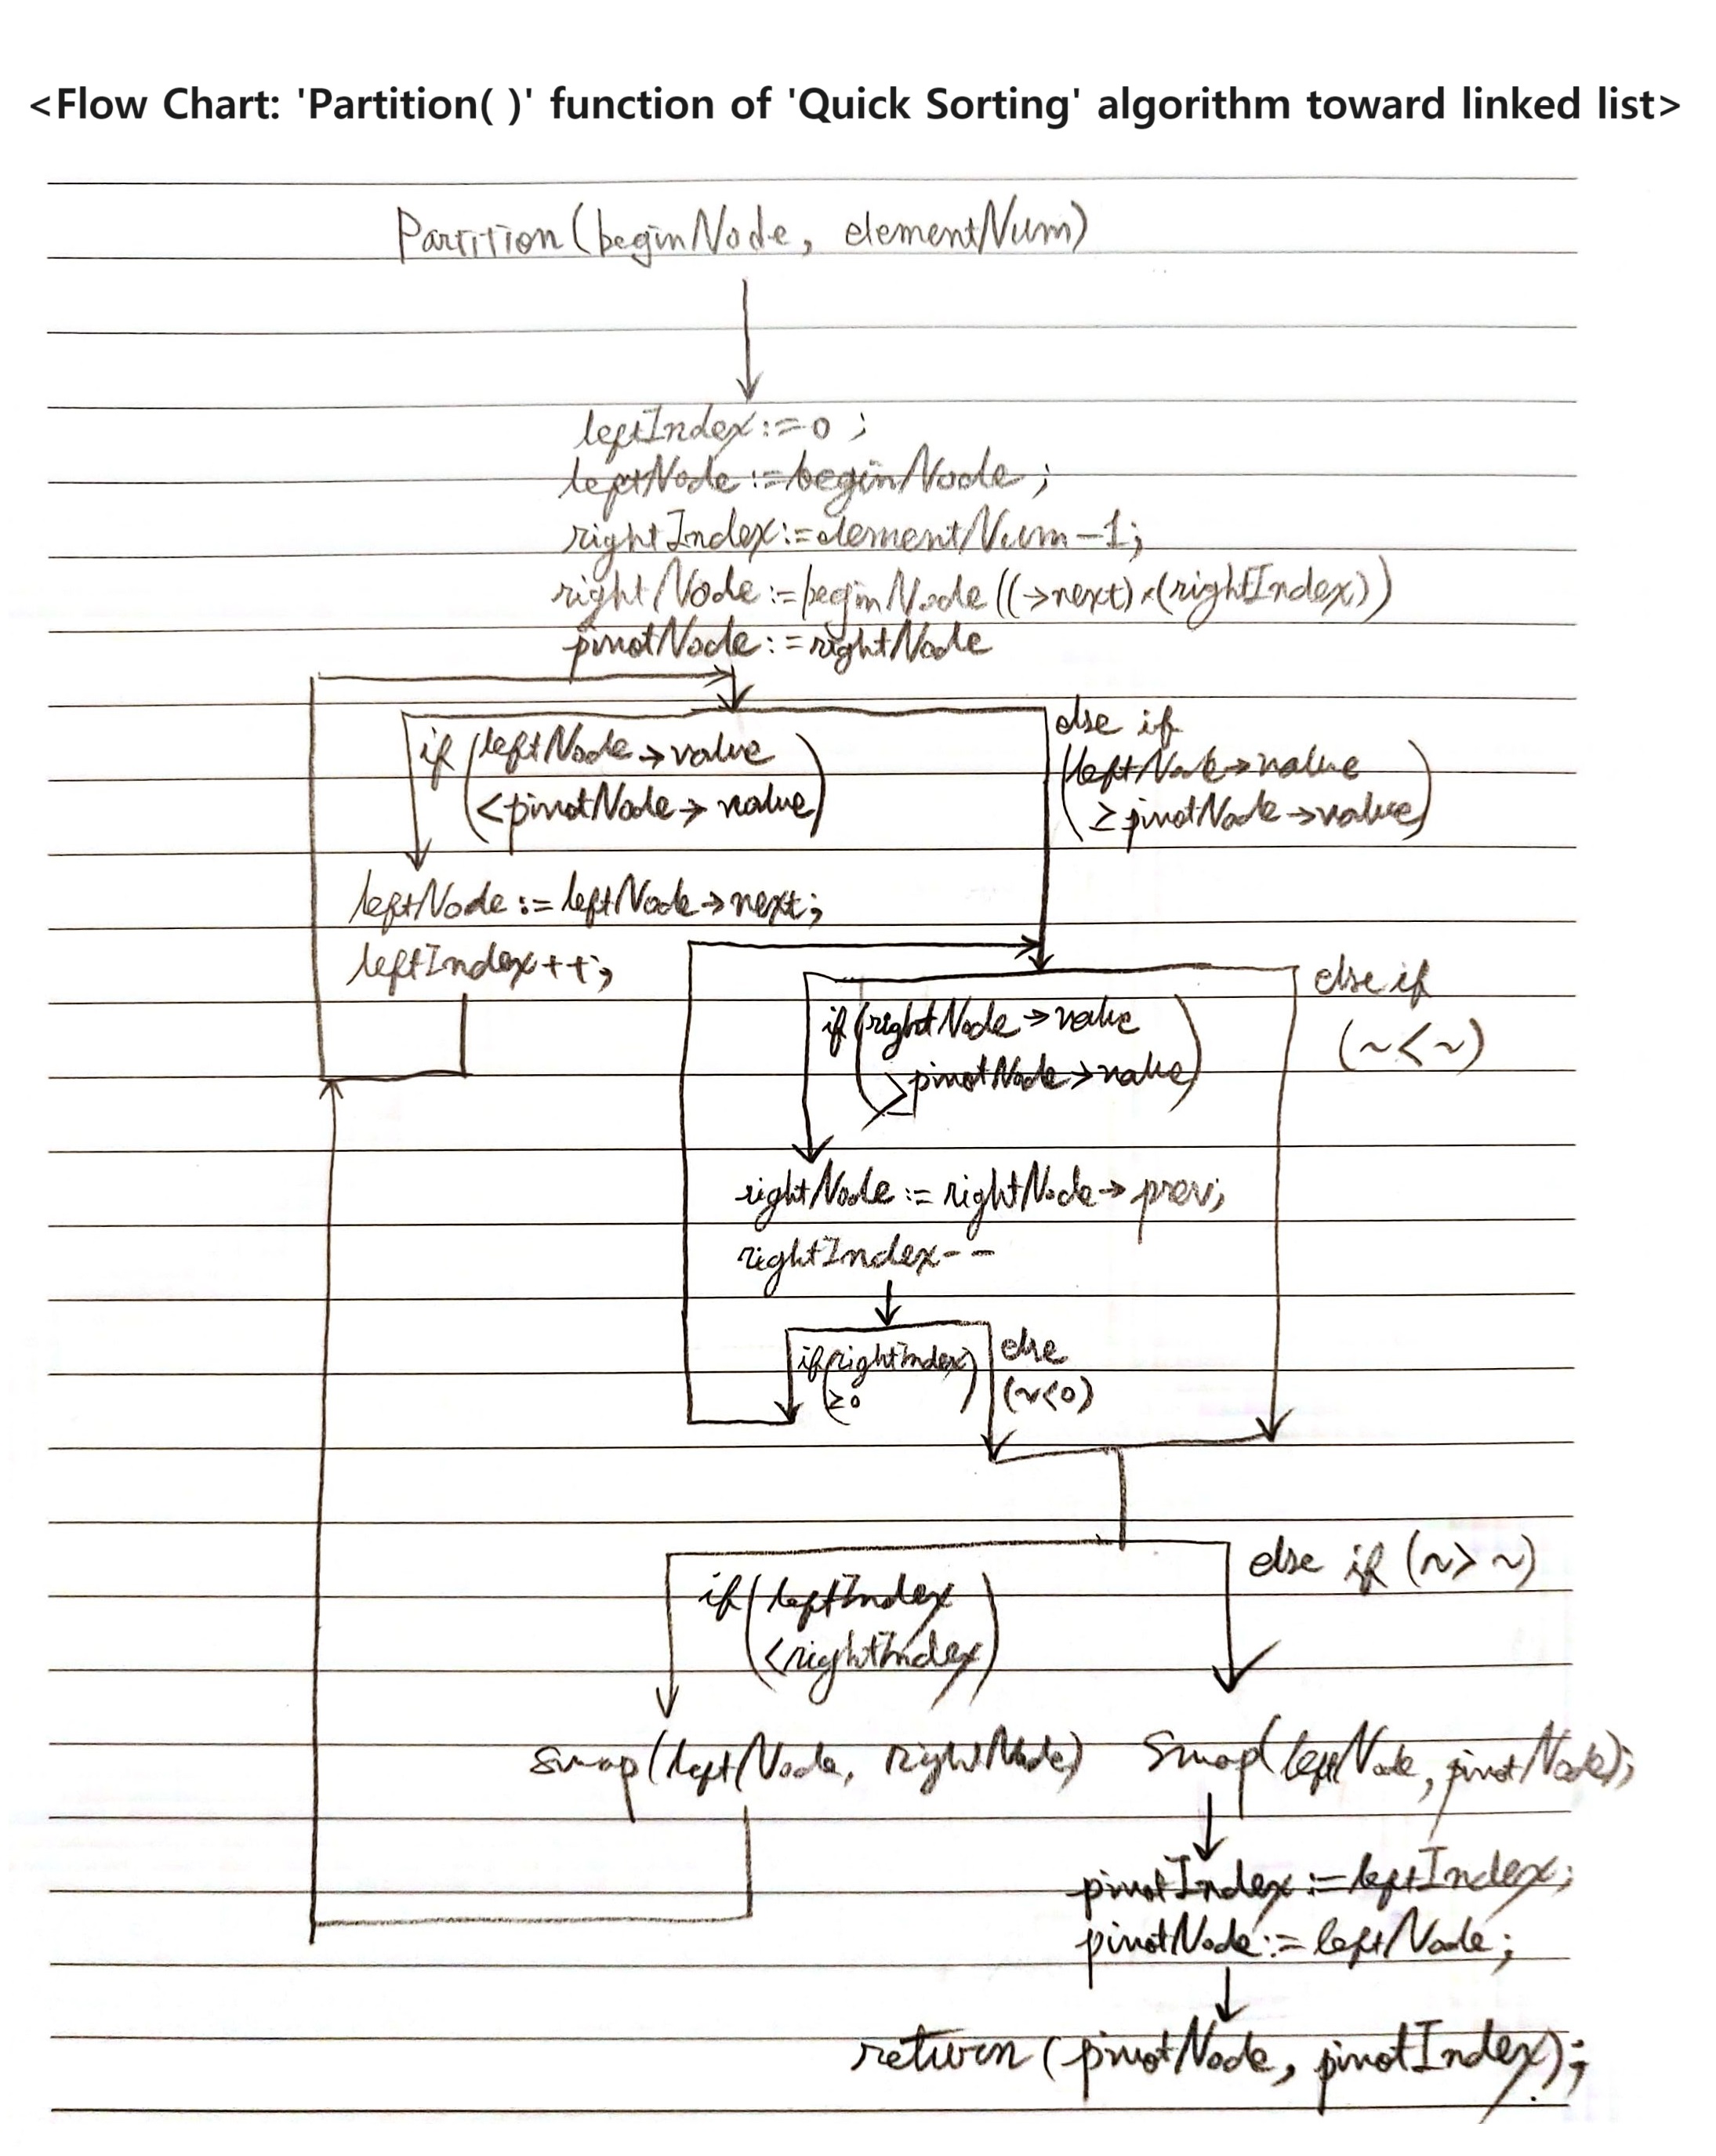 <Flow Chart: 'Partition( )' function of 'Quick Sorting' algorithm toward linked list>
Partition(beginNode, elementNum)
leftIndex:=0;
leftNode:=beginNode;
rightIndex:=elementNum-1;
rightNode:=beginNode((→next)×(rightIndex))
pivotNode:=rightNode
if (leftNode→value
<pivotNode→value)
else if
(leftNode→value
≥pivotNode→value)
leftNode:=leftNode→next;
leftIndex++;
if (rightNode→value
≥pivotNode→value)
else if
(~<~)
rightNode:=rightNode→prev;
rightIndex--
if(rightIndex
≥0)
else
(~<0)
if(leftIndex
<rightIndex)
else if (~>~)
swap(leftNode, rightNode)
Swap(leftNode, pivotNode);
pivotIndex:=leftIndex;
pivotNode:=leftNode;
return(pivotNode, pivotIndex);